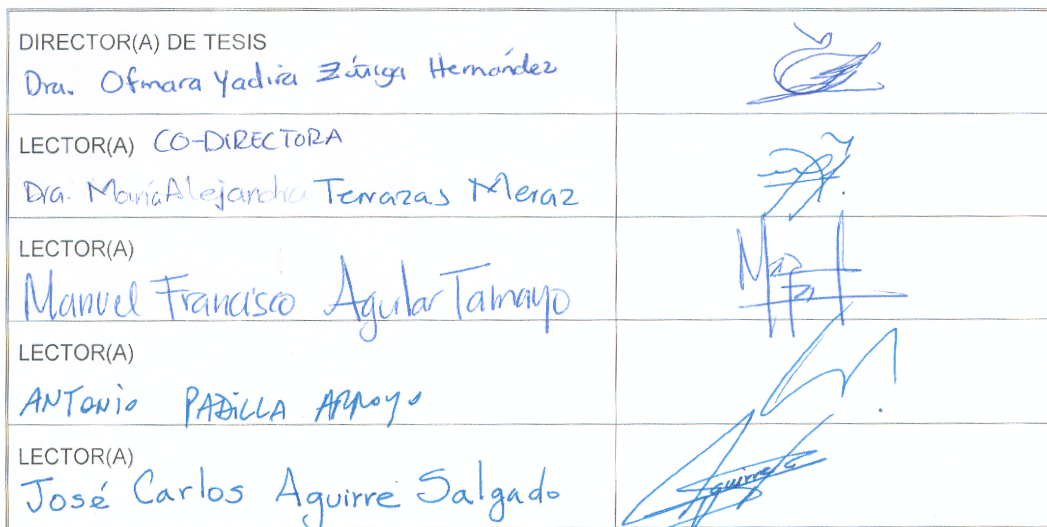 DIRECTOR(A) DE TESIS
Dra. Ofmara Yadira Zúñiga Hernández
LECTOR(A) CO-DIRECTORA
Dra. María Alejandra Terrazas Meraz
LECTOR(A)
Manuel Francisco Aguilar Tamayo
LECTOR(A)
ANTONIO PADILLA ARROYO
LECTOR(A)
José Carlos Aguirre Salgado
Aguirre